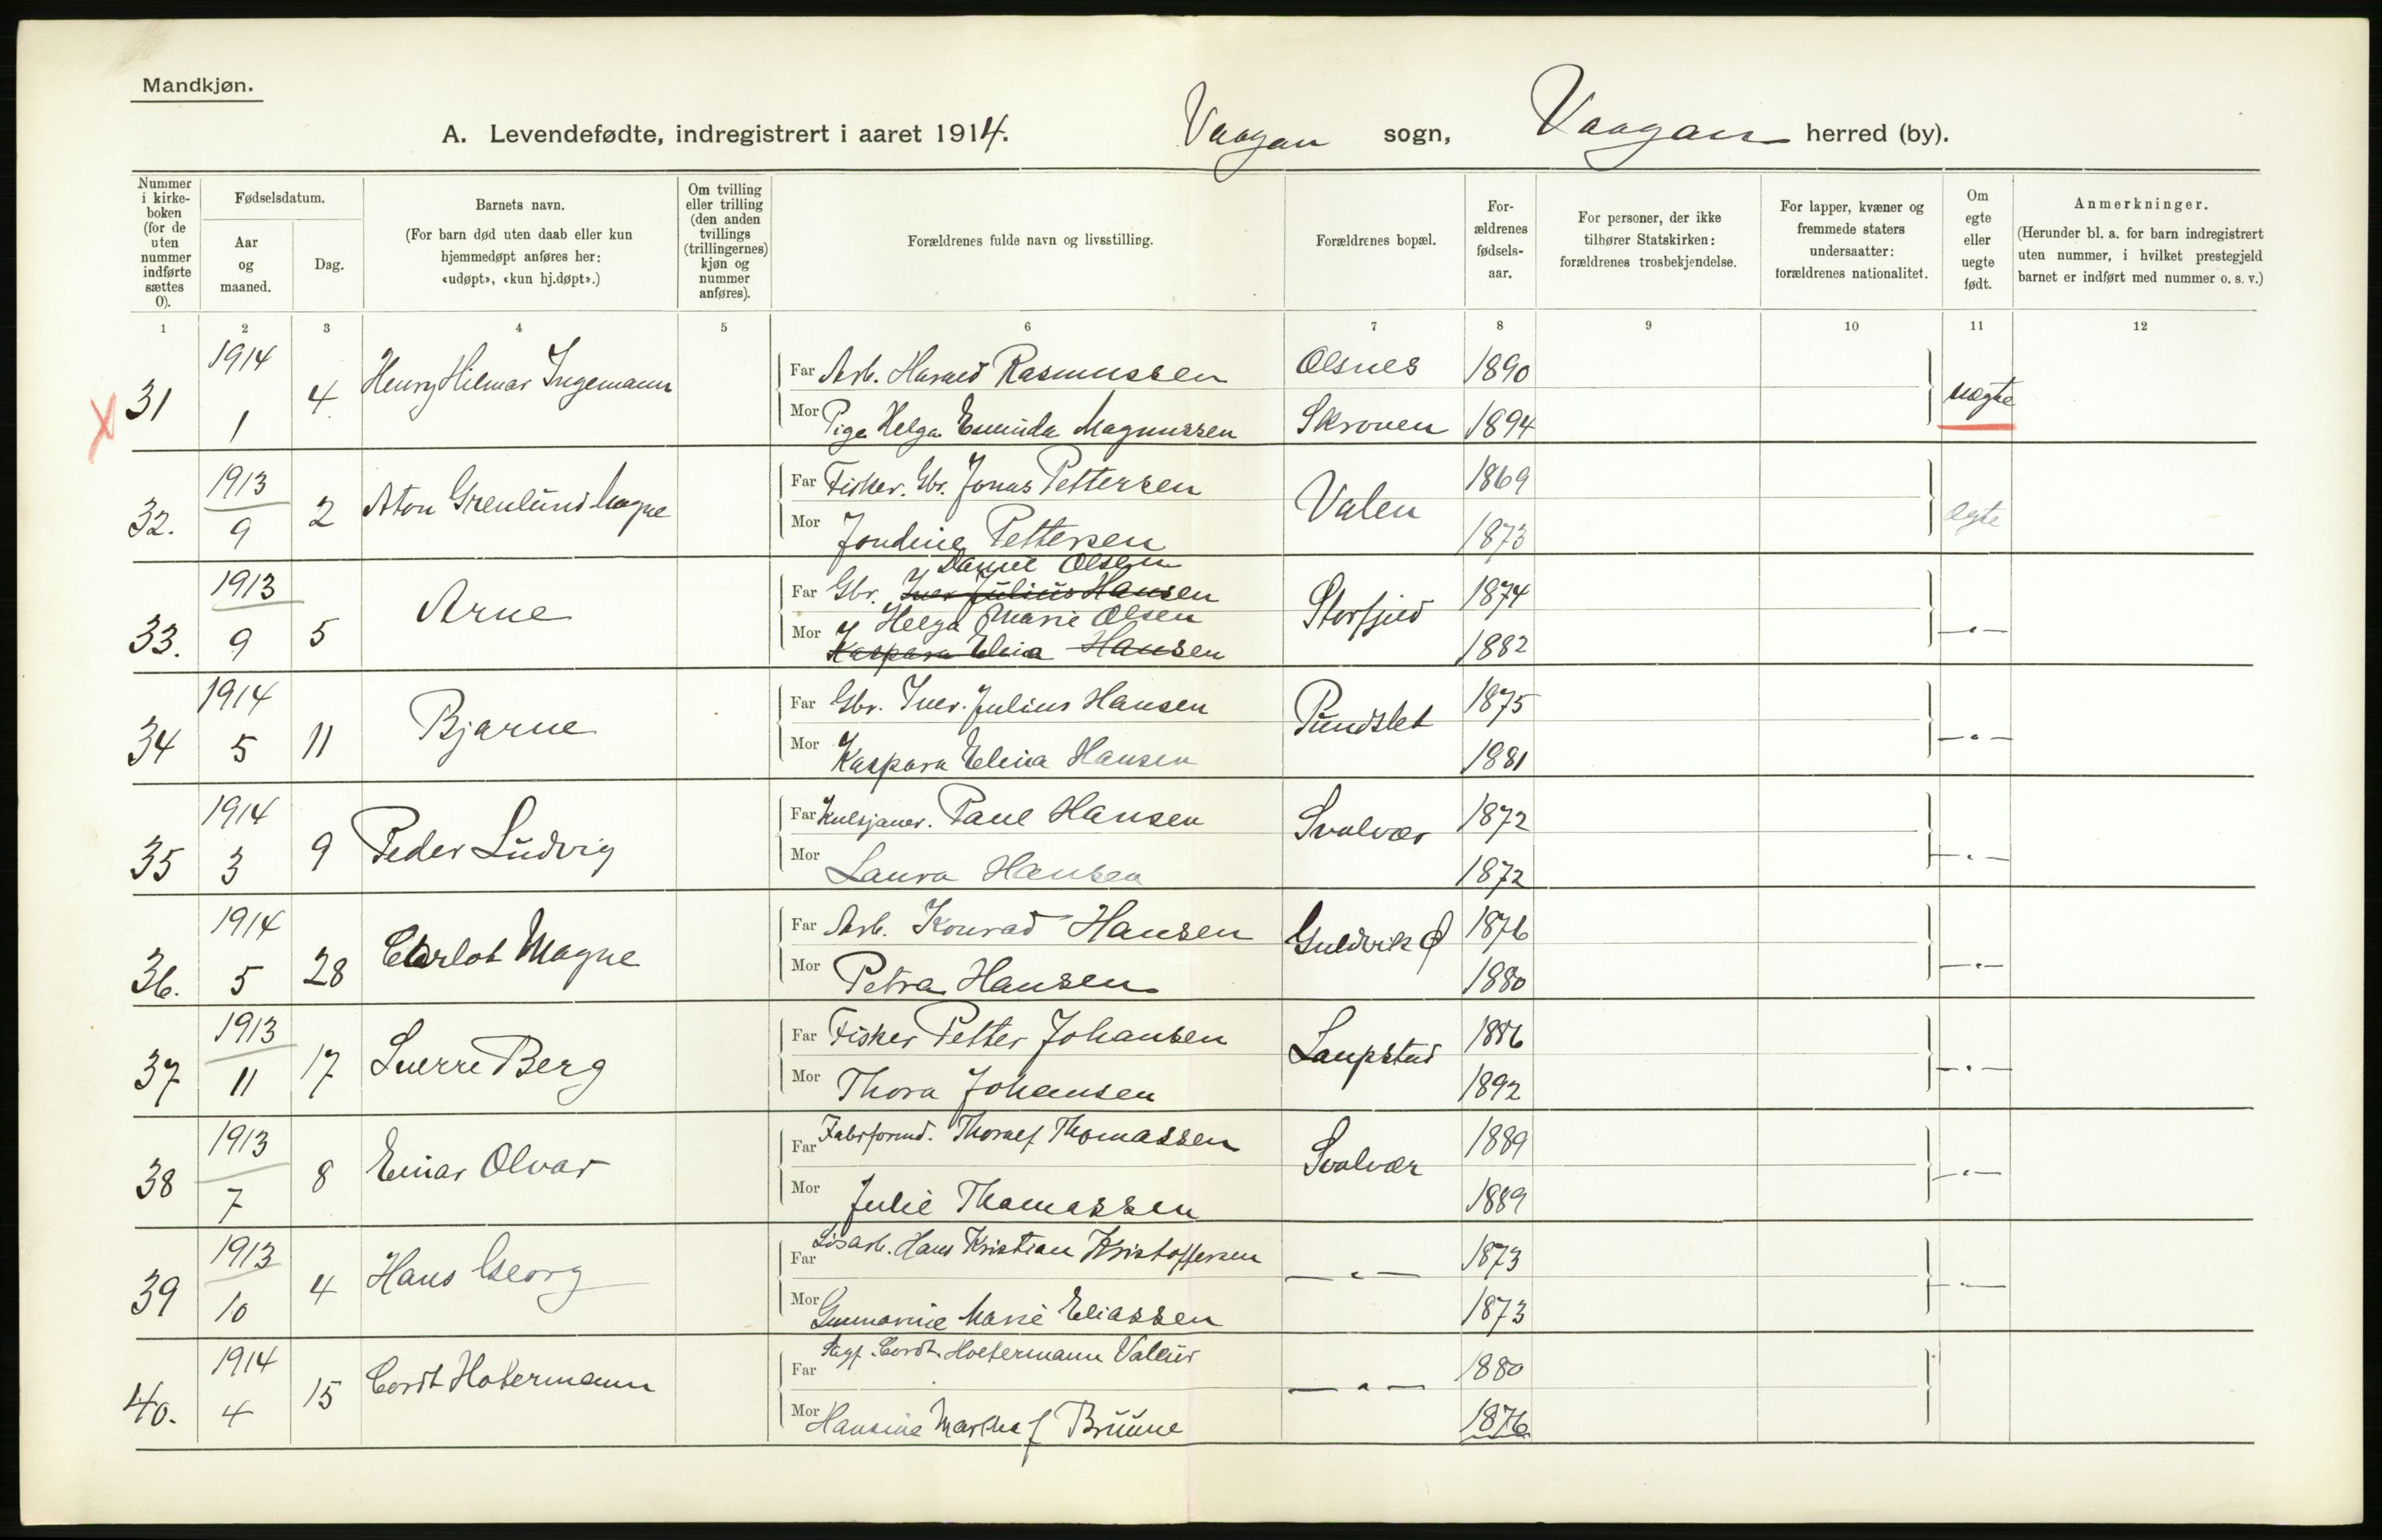 Mandkjøn.
A. Levendefødte, indregistrert i aaret 1914. Vaagan sogn, Vaagan herred (by).
Nummer i kirke-boken (for de uten nummer indførte sættes 0).
Fødselsdatum.
Aar og maaned.
Dag.
Barnets navn.
(For barn død uten daab eller kun hjemmedøpt anføres her: «udøpt», «kun hj.døpt».)
Om tvilling eller trilling (den anden tvillings (trillingernes) kjøn og nummer anføres).
Forældrenes fulde navn og livsstilling.
Forældrenes bopæl.
For-ældrenes fødsels-aar.
For personer, der ikke tilhører Statskirken: forældrenes trosbekjendelse.
For lapper, kvæner og fremmede staters undersaatter: forældrenes nationalitet.
Om egte eller uegte født.
Anmerkninger.
(Herunder bl. a. for barn indregistrert uten nummer, i hvilket prestegjeld barnet er indført med nummer o. s. v.)
1 2 3 4 5 6 7 8 9 10 11 12
X 31 1914 1 4 Henry Hilmar Ingemann
Far Arb. Harald Rasmussen Olsnes 1890
Mor Pige Helga Eminda Magnussen Skroven 1894 uegte
32. 1913 9 2 Aton Grenlund Magne
Far Fisker. Gbr. Jonas Pettersen Valen 1869
Mor Jondine Pettersen 1873 egte
33. 1913 9 5 Arne
Daniel Olsen
Far Gbr. Iver Julius Hansen Storfjeld 1874
Helga Marie Olsen
Mor Kaspara Elina Hansen 1882 —〃—
34 1914 5 11 Bjarne
Far Gbr. Iver Julius Hansen Pundslet 1875
Mor Kaspara Elina Hansen 1881 —〃—
35 1914 3 9 Peder Ludvig
Far Kulsjauer. Paul Hansen Svolvær 1872
Mor Laura Hansen 1872 —〃—
36. 1914 5 28 Carlot Magne
Far Arb. Konrad Hansen Guldvik Ø 1876
Mor Petra Hansen 1880 —〃—
37 1913 11 17 Sverre Berg
Far Fisker Petter Johansen Laupstad 1886
Mor Thora Johansen 1892 —〃—
38 1913 7 8 Einar Olvar
Far Fabrformd. Thoralf Thomassen Svolvær 1889
Mor Julie Thomassen 1889 —〃—
39 1913 10 4 Hans Georg
Far Løsarb. Hans Kristian Kristoffersen —〃— 1873
Mor Gunnarine Marie Eliassen 1873 —〃—
40. 1914 4 15 Cordt Holtermann
Far Cordt Holtermann Valeur —〃— 1880
Mor Hansine Marthea f Bruune 1876